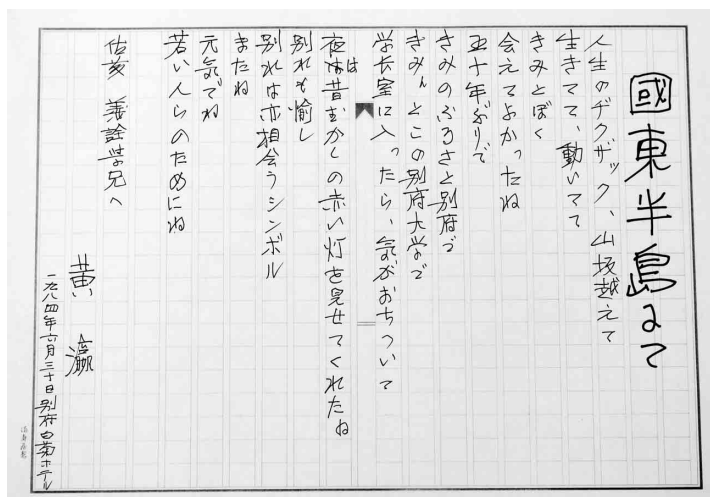 國東半島にて
人生のヂクザック、山坂越えて
生きてて、動いてて
きみとぼく
会えてよかったね
五十年ぶりで
きみのふるさと別府で
きみんとこの別府大学で
学长室に入ったら、気がおちついて
夜は昔むかしの赤い灯を見せてくれたね
は
別れも愉し
別れは亦相会うシンボル
またね
元気でね
若い人らのためにね
佐藤 義詮学兄へ
黄 瀛
一九八四年六月三十日別府白菊ホテル